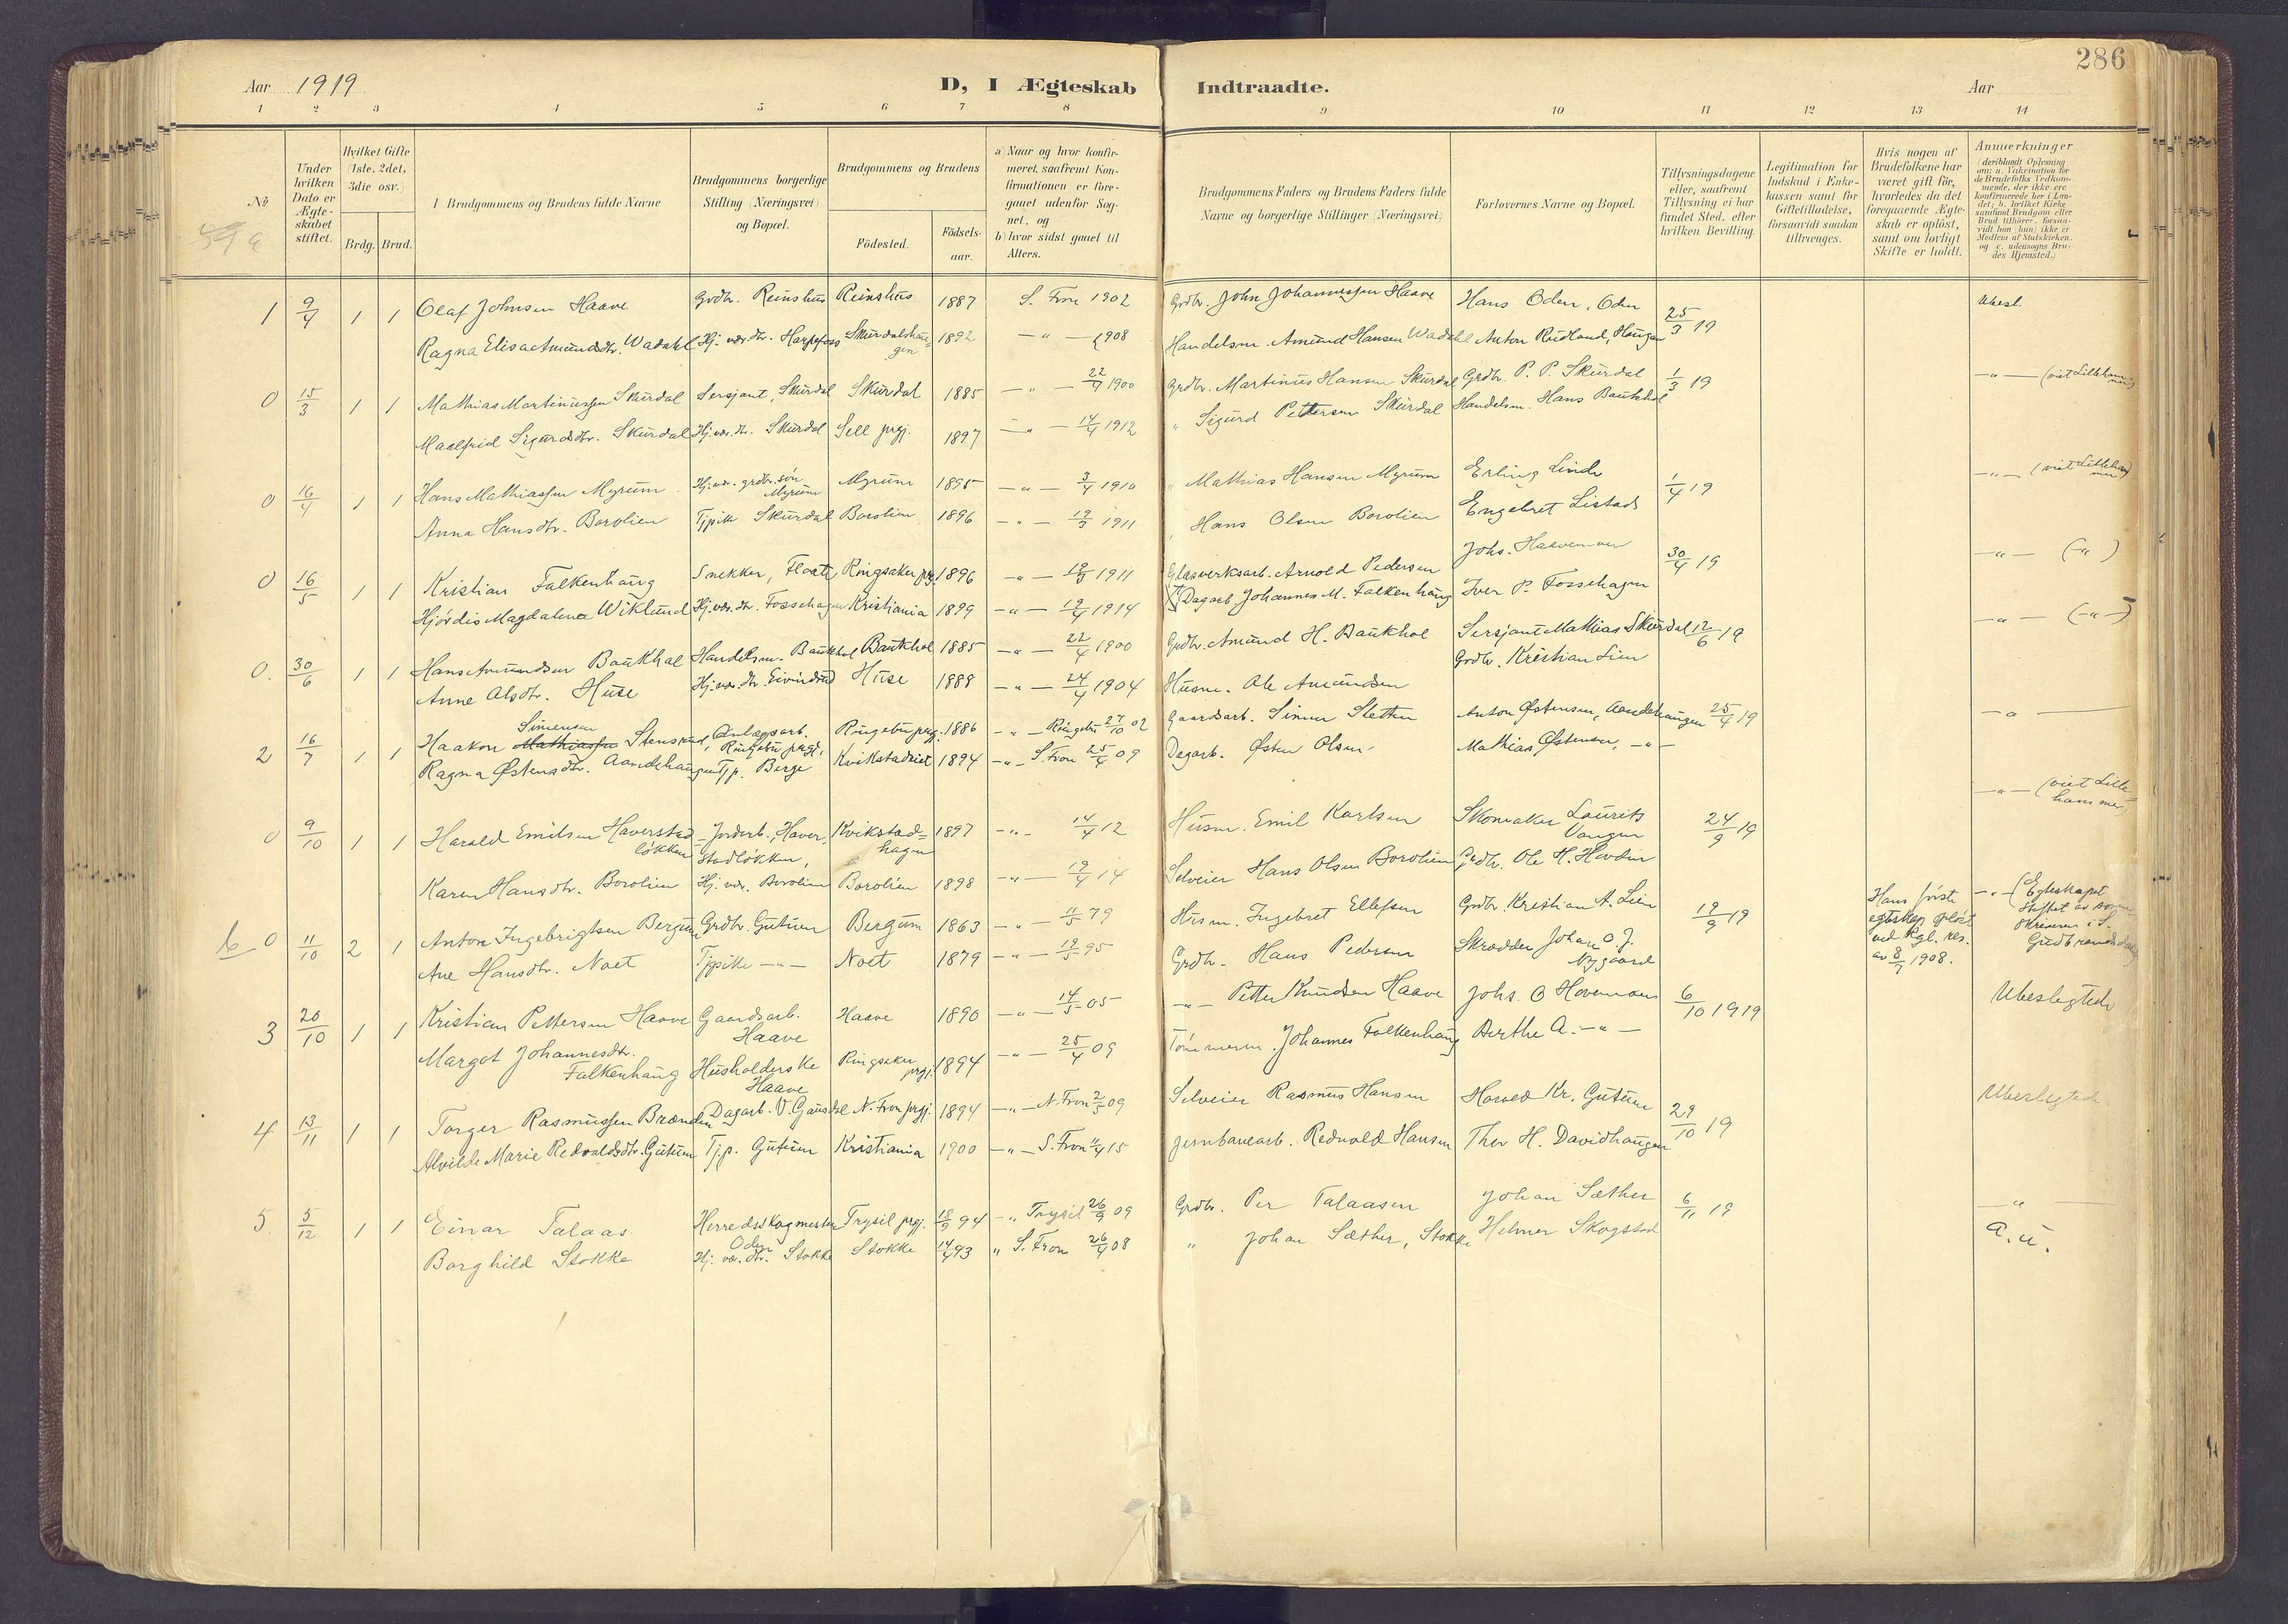 286
Aar 1919
D, I Ægteskab Indtraadte.
Aar
1 2 3 4 5 6 7 8 9 10 11 12 13 14
No
Under hvilken Dato er Ægteskabet stiftet.
Hvilket Gifte (1ste, 2det, 3die osv.)
Brdg. Brud.
I Brudgommens og Brudens fulde Navne
Brudgommens borgerlige Stilling (Næringsvei) og Bopæl.
Brudgommens og Brudens
Födested.
Födselsaar.
a) Naar og hvor konfirmeret, saafremt Konfirmationen er foregaaet udenfor Sognet, og
b) hvor sidst gaaet til Alters.
Brudgommens Faders og Brudens Faders fulde Navne og borgerlige Stillinger (Næringsvei)
Forlovernes Navne og Bopæl.
Tillysningsdagene eller, saafremt Tillysning ei har fundet Sted, efter hvilken Bevilling.
Legitimation for Indskud i Enkekassen samt for Giftetilladelse, forsaavidt saadan tiltrænges.
Hvis nogen af Brudefolkene har været gift för, hvorledes da det foregaaende Ægteskab er oplöst, samt om lovligt Skifte er holdt.
Anmærkninger
(deriblandt Oplysning om: a. Vakcination for de Brudefolks Vedkommende, der ikke ere konfirmerede her i Landet; b. hvilket Kirkesamfund Brudgom eller Brud tilhører, forsaavidt han (hun) ikke er Medlem af Statskirken, og c. udensogns Brudes Hjemsted.)
1 9/4 1 1 Olaf Johnsen Haave Grdbr. Reinshus Reinshus 1887 S. Fron 1902 Grdbr. John Johannessen Haave Hans Oden, Oden 25/3 19 Ubesl.
Ragna Elise Amundsdtr. Wadahl Hj. vær. dtr. Harpefoss Skurdalshaugen 1892 -"- 1908 Handelsm. Amund Hansen Wadahl Anton Rudland, Haugen
0 15/3 1 1 Mathias Martinussen Skurdal Sersjant, Skurdal Skurdal 1885 -"- 22/4 1900 Grdbr. Martinus Hansen Skurdal Grdbr. P. P. Skurdal 1/3 19 -"- (viet Lillehammer)
Maalfrid Sigurdsdtr. Skurdal Hj. vær. dtr. Skurdal Sell prgj. 1897 -"- 14/4 1912 " Sigurd Pettersen Skurdal Handelsm. Hans Baukhol
0 16/4 1 1 Hans Mathiassen Myrum Hj. vær. grdbr. sön Myrum Myrum 1895 -"- 3/4 1910 " Mathias Hansen Myrum Erling Linde 1/4 19 -"- (viet Lillehammer)
Anna Hansdtr. Borolien Tjpike Skurdal Borolien 1896 -"- 19/3 1911 Hans Olsen Borolien Engebret Listad
0 16/5 1 1 Kristian Falkenhaug Snekker, Ringsaker prgj. 1896 -"- 1911 Glasverksarb. Arnold Pedersen Johs. 30/4 19 -"- (-"-)
Hjördis Magdalena Wiklund Hj. vær. dtr. Fossehagen Kristiania 1899 -"- 19/4 1914 Dagarb Johannes M. Falkenhaug Iver P. Fossehagen
0. 30/6 1 1 Hans Amundsen Baukhal Handelsm. Baukhol Baukhol 1885 -"- 22/4 1900 Grdbr. Amund H. Baukhol Sersjant Mathias Skurdal 12/6 19 -"- (-"-)
Anne Olsdtr. Huse Hj. vær. dtr. Huse 1888 -"- 24/4 1904 Husm. Ole Amundsen Grdbr. Kristian Lien
2 16/7 1 1 Haakon Simensen Anlægsarb. Ringebu prgj. Ringebu prgj. 1886 -"- Ringebu 27/10 02 Gaardsarb. Simen Sletten Anton Østensen, Aandehaugen 25/4 19 -"-
Ragna Østensdtr. Aandehaugen Tjp. Berge 1894 -"- S. Fron 25/4 09 Dagarb. Østen Olsen Mathias Østensen, -"-
0 9/10 1 1 Harald Emilsen Haverstadlökken Jordarb. Haverstadlökken, Kvikstadhagen 1897 -"- 14/4 12 Husm. Emil Karlsen Skomaker Laurits Vangen 24/9 19 -"- (viet Lillehammer)
Karen Hansdtr. Borolien Hj. vær. Borolien Borolien 1898 -"- 19/4 14 Selveier Hans Olsen Borolien Grdbr. Ole H. Hovden
0 11/10 2 1 Anton Ingebrigtsen Bergum Grdbr. Gutum Bergum 1863 -"- 11/5 79 Husm. Ingebret Ellefsen Grdbr. Kristian A. Lien 19/9 19 Hans förste egtskap oplöst ved Kgl. res. av 8/7 1908. -"- (Egteskapet stiftet av sorenskriveren i S. Gudbrandsdalen)
Ane Hansdtr. Noet Tjpike -"- Noet 1879 -"- 19/5 95 Grdbr. Hans Pedersen Skrædder Johan O. J. Nygaard
3 20/10 1 1 Kristian Pettersen Haave Gaardsarb. Haave Haave 1890 -"- 14/5 05 -"- Petter Knudsen Haave Johs. O Hovemoen 6/10 1919 Ubeslegtede
Margot Johannesdtr. Falkenhaug Husholderske Haave Ringsaker prgj. 1894 -"- 25/4 09 Tömmerm. Johannes Falkenhaug Berthe A. -"-
4 13/11 1 1 Torger Rasmussen Brænden Dagarb. V. Gausdal N. Fron prgj. 1894 -"- N. Fron 2/5 09 Selveier Rasmus Hansen Harald Kr. Gutum 29/10 19 Ubeslegtede
Alvilde Marie Redvaldsdtr. Gutum Tjp. Gutum Kristiania 1900 -"- S. Fron 11/4 15 Jernbanearb. Redvald Hansen Thor H. Davidhaugen
5. 5/12 1 1 Einar Talaas Herredsskogmester Oden Trysil prgj. 18/9 94 -"- Trysil 26/9 09 Grdbr. Per Talaasen Johan Sæther 6/11 19 -"-
Borghild Stokke Hj. vær. dtr. Stokke Stokke 14/4 93 " S. Fron 26/4 08 " Johan Sæther, Stokke Helmer Skogstad a. u.